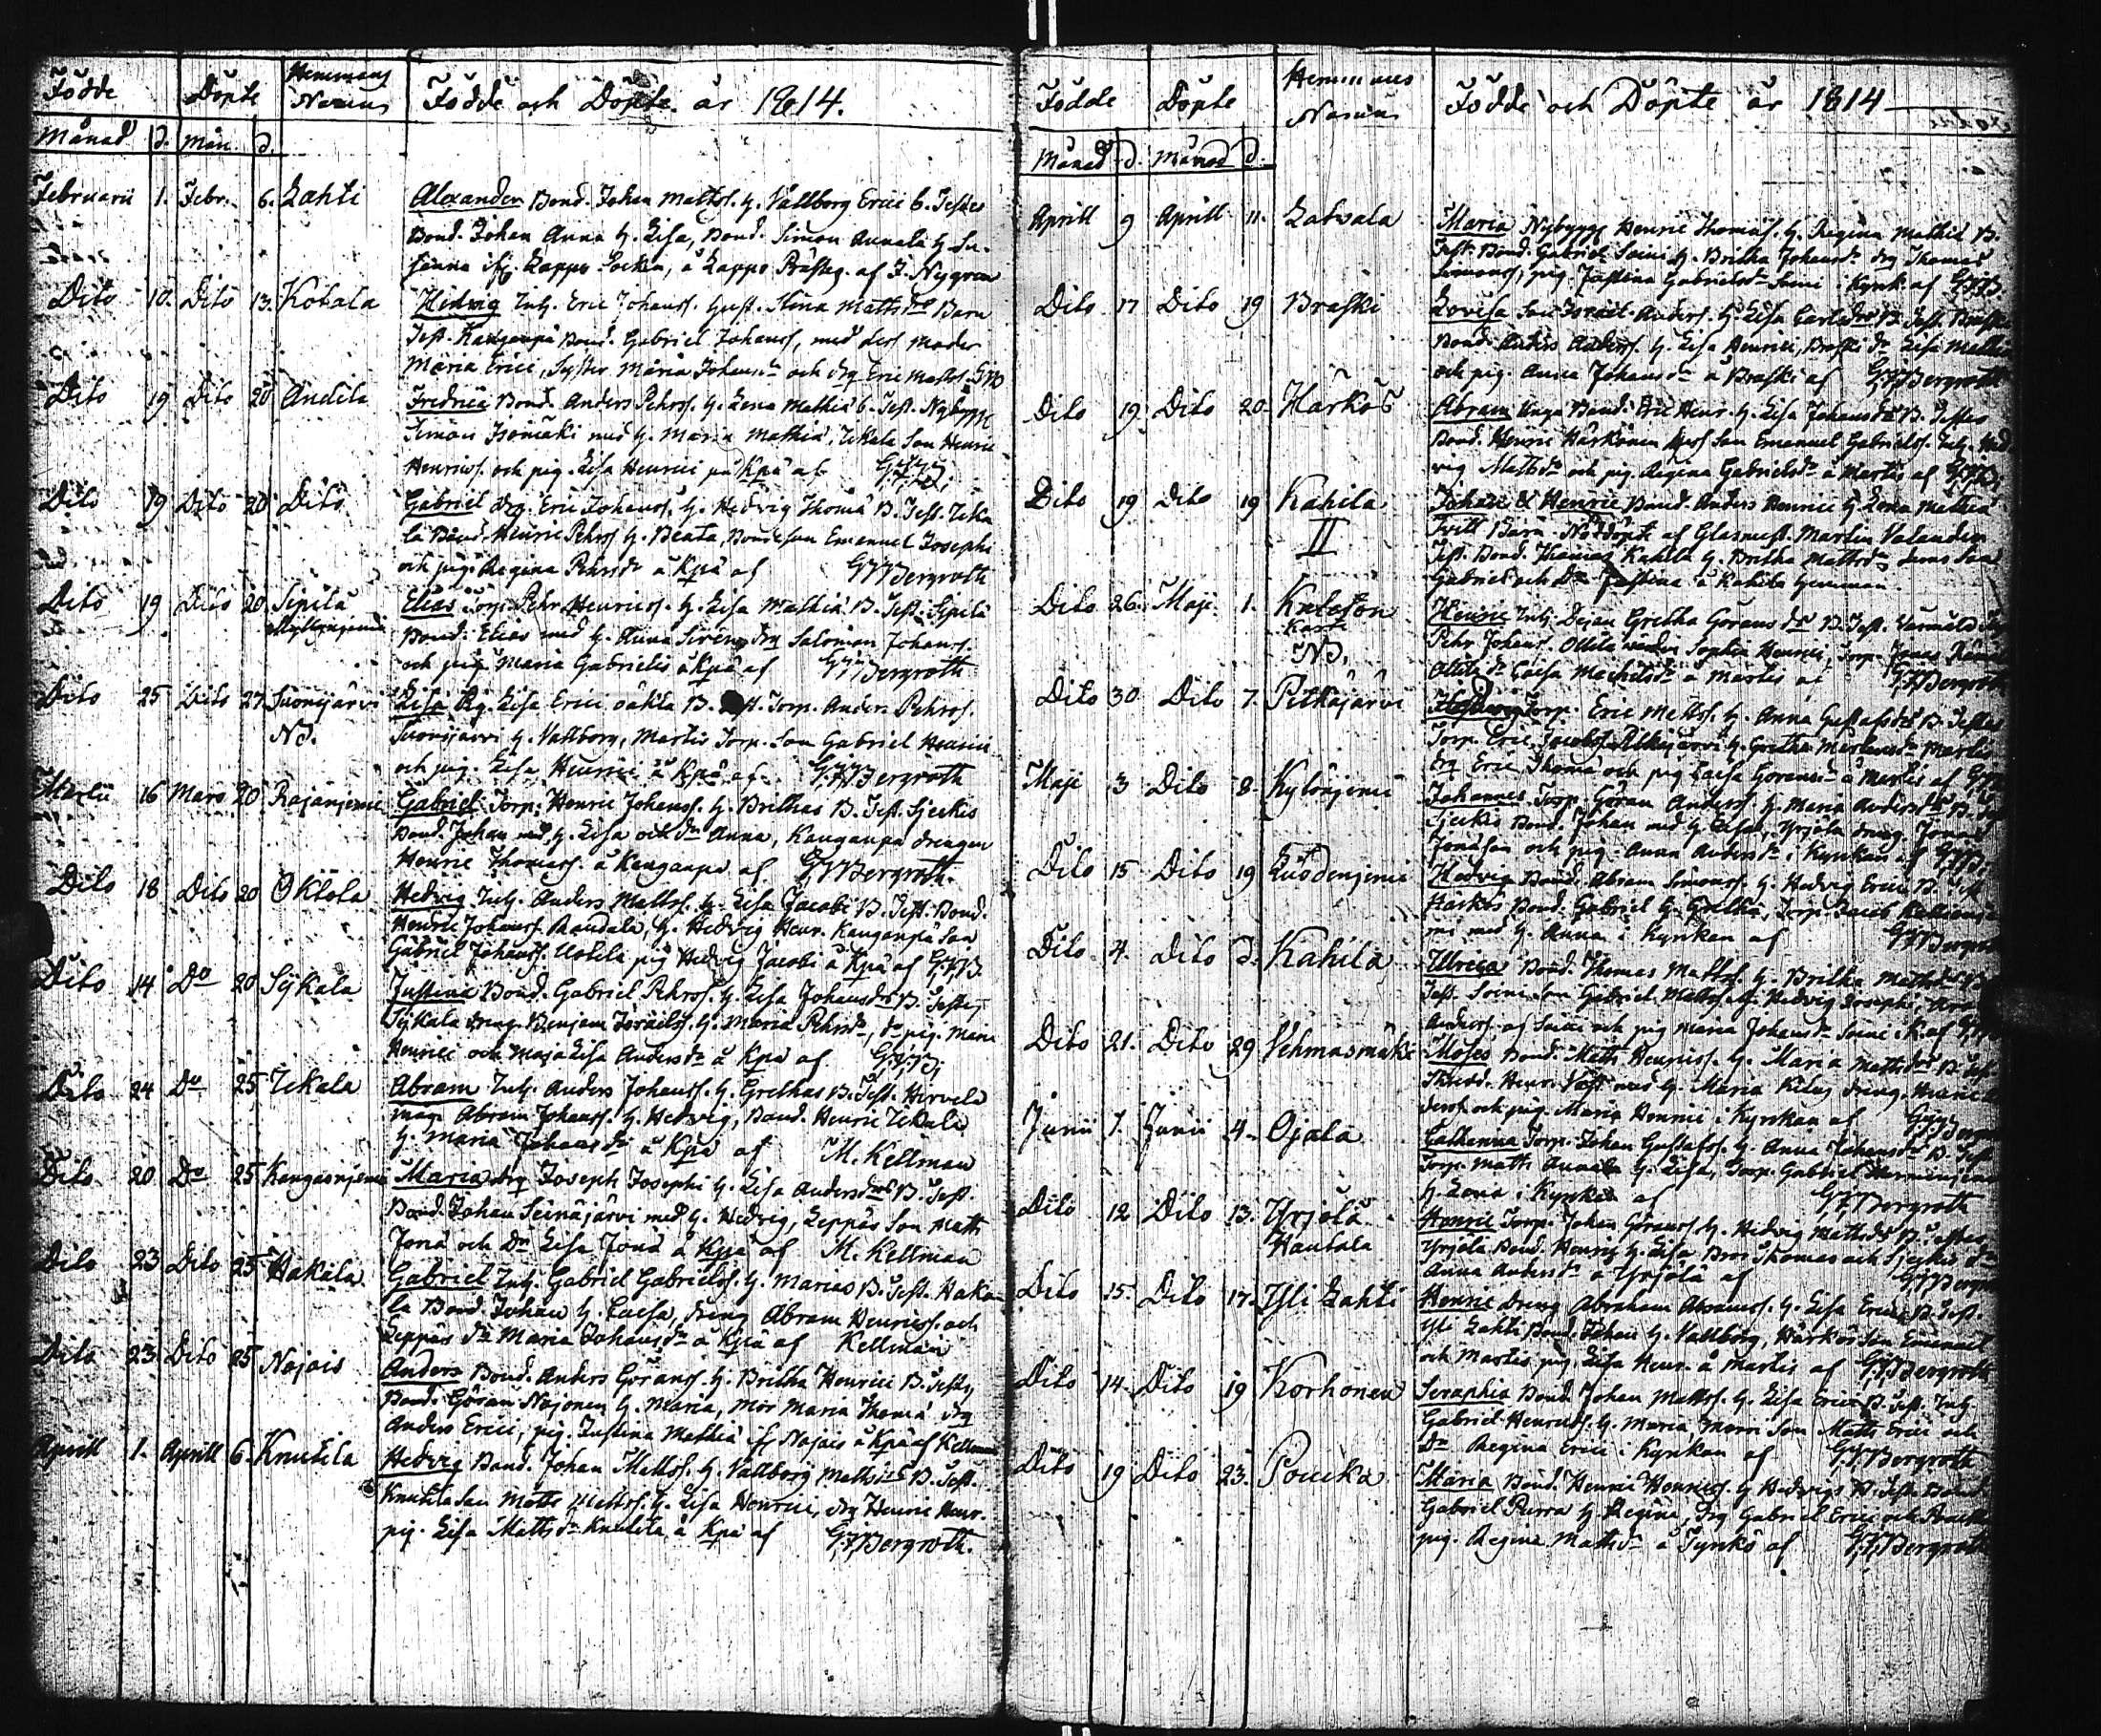 Födde Döpte Hemmans Namn Födde och Döpte år 1814.
Månad d. Mån d.
Februarii 1. Febr. 6. Lahti Alexander Bond. Johan Mattss. h. Vallborg Erici B. Testes
Bond. Johan Anna h. Lisa, Bond. Simon Annala h. Su-
sanna ifr. Lappo Socken, å Lappo Prästg. af J. Nygren
Dito 10. Dito 13. Kotala Hedvig Inh. Eric Johanss. hust. Stina Mattsdrs Barn
Test. Kangaupä Bond. Gabriel Johanss, med dess Moder
Maria Erici, Syster Maria Johansdr och drg Eric Mattss.
Dito 19 Dito 20 Andila Fredrica Bond. Anders Pehrss. h. Lena Mathiæ B. Test. Nybygg.
Simon Isomäki med h. Maria Mathiæ, Tekala Son Henric
Henricss. och pig. Lisa Henrici på Kpä af
Dito 19 Dito 20 Dito Gabriel drg. Eric Johanss. h. Hedvig Thomæ B. Test. Teka
la Bond. Henric Pehrss h. Beata, Bondeson Emanuel Josephi
och pig. Regina Pehrsdr å Kpä af GFBergroth
Dito 19 Dito 20. Sipilä Elias Torp. Pehr Henricss. h. Lisa Mathiæ B. Test. Sipilä
Bond. Elias med h. Anna Siren, drg Salomon Johanss.
och pig Maria Gabrielis å Kpä af GFBergroth
Dito 25 Dito 27 Suonijärvi Lisa Pig. Lisa Erici oäkta B. Test. Torp. Anders Pehrss.
Nd. Suonijärvi h. Vallborg, Martis Torp. Son Gabriel Henrici
och pig. Lisa Henrici å Kpä af GFBergroth
Martii 16 Mars 20 Rajaniemi Gabriel Torp. Henric Johanss. h. Brithas B. Test. Sjeckis
Bond. Johan med h. Lisa och Dn Anna, Kangaupä drengen
Henric Thomass. å Kangaupä af GFBergroth.
Dito 18 Dito 20 Oktola Hedvig Inh. Anders Mattss. h. Lisa Jacobi B. Test. Bond.
Henric Johanss. Raudala, h. Hedvig Henr. Kangaupä Son
Gabriel Johanss. Uotila pig Hedvig Jacobi å Kpä af GFB.
Dito 14 Do 20 Sÿkala Justina Bond. Gabriel Pehrss. h. Lisa Johansdrs B. Testes,
Sÿkala dreng. Benjam Israelss. h. Maria Pehrsdr, do pig. Maria
Henrici och Maja Lisa Andersdr å Kpä af GFB.
Dito 24 Do 25 Tekala Abram Inh. Anders Johanss. h. Grethas B. Test. Hirvelä
måg. Abram Johanss. h. Hedvig, Bond. Henric Tekala
h. Maria Johansdr å Kpä af M. Kellman
Dito 20 Do 25 Kangasniemi Maria drg Joseph Josephi h. Lisa Andersdrs B. Test.
Bond. Johan Seinäjärvi med h. Hedvig, Leppäs Son Matts
Jonæ och Dn Lisa Jonæ å Kpä af M. Kellman
Dito 23 Dito 25 Hakala Gabriel Inh. Gabriel Gabrielss. h. Marias B. Test. Haka
la Bond. Johan h. Caisa, dreng Abram Henricss. och
Leppäs Dn Maria Johansdr å Kpä af Kellman
Dito 23 Dito 25 Nojois Anders Bond. Anders Göranss. h. Britha Henrici B. Testes,
Bond. Göran Nojonen h. Maria, Mor Maria Thomæ drg
Anders Erici, pig. Justina Mathiæ ifr Nojois å Kpä af Kellman
Aprill 1. Aprill 6. Knuutila Hedvig Bond. Johan Mattss. h. Vallborg Mattsdrs B. Test.
Knutila Son Matts Mattss. h. Lisa Henrici, drg Henric Henr.
pig. Lisa Mattsdr Knutila å Kpä af GFBergroth.
Födde Döpte Hemmans Namn Födde och Döpte år 1814
Månad d. Månad d.
Aprill 9 Aprill 11. Latvala Maria Nybygg Henric Thomass. h. Regina Mathiæ B.
Test. Bond. Gabriel Soini h. Britha Johansdr drg Thomas
Simonss, pig. Justina Gabrielsdr Soini i Kyrk. af GFB.
Dito 17 Dito 19 Braski Lovisa Son Israel Anderss. h. Lisa Carlsdrs B. Test. Braski
Bond. Anders Anderss. h. Lisa Henrici, Braski Dr Lisa
och pig. Anna Johansdr å Braski af GFBergroth
Dito 19 Dito 20 Härkös Abram Unga Bond. Eric Henr. h. Lisa Johansdrs B. Testes
Bond. Henric Härkönen dess Son Emanuel Gabrielss. Inh. Hed
vig Mattsdr och pig Regina Gabrielsdr å Martis af GFB.
Dito 19 Dito 19 Kahila Johan & Henric Bond. Anders Henrici h. Lena Mathiæ
II Tvill Barn Nöddöpte af Glasmäst. Martin Valander
Test. Bond. Thomas Kahila h. Britha Mattsdr deras Son
Gabriel och Dr Justina å Kahila hemman.
Dito 26. Maji 1. Henric Inh. Dejan Gretha Göransdrs B. Test.
Nd. Pehr Johanss. Sophia Henrici, Torp. Jonas
Caisa Michelsdr å Martis af GFBergroth
Dito 30 Dito 7. Pitkäjärvi Hedvig Torp. Eric Mattss. h. Anna Gustafsdrs B. Testes
Torp. Eric Jacobss. Pitkäjärvi h. Gretha Martis
drg Eric Thomæ och pig Caisa Göransdr å Martis af
Maji 3 Dito 8. Kylänjemi Johannes Torp. Göran Anderss. h. Maria Andersdrs B.
Sjeckis Bond. Johan med h. Caisa, Yrjölä dreng Jonas
Jonasson och pig. Anna Andersdr i Kyrkan af GFB.
Dito 15 Dito 19 Hedvig Bond. Abram Simonss. h. Hedvig Erici B. Test
Härkös Bond. Gabriel h. Gretha, Torp. Jacob
mi med h. Anna i Kyrkan af GFBergroth
Dito 4. Dito d. Kahila Ulrica Bond. Thomas Mattss. h. Britha Mattsdrs B.
Test. Soini Son Gabriel Mattss. h. Hedvig Josephi,
Anderss. af Soini och pig Maria Johansdr Soini i K. af
Dito 21. Dito 29 Vehmasmäki Moses Bond. Matts Henricss. h. Maria Mattsdrs B.
med h. Maria dreng. Henric
och pig. Maria Henrici i Kyrkan af GFBergroth
Junii 1. Junii 4. Ojala Catharina Torp. Johan Gustafss. h. Anna Johansdr B. Test.
Torp. Matts Annala h. Lisa, Torp. Gabriel
h. Lovisa i Kyrkan af GFBergroth
Dito 12 Dito 13. Yrjölä Henric Torp. Johan Göranss h. Hedvig Mattsdrs B. Testes
Hautala Yrjölä Bond. Henric h. Lisa Bror Thomas och Sjeckis Dr
Anna Andersdr å Yrjölä af GFBergroth
Dito 15. Dito 17. Yli Lahti Henric dreng Abraham Abramss. h. Lisa Erici B. Test.
Yli Lahti Bond. Johan h. Vallborg, Härkös Son Emanuel
och Martis pig Lisa Henr. å Martis af GFBergroth
Dito 14. Dito 19 Korhonen Seraphia Bond. Johan Mattss. h. Lisa Erici B. Test. Inh.
Gabriel Henricss. h. Maria, Son Matts Erici och
Dn Regina Erici i Kyrkan af GFBergroth
Dito 19 Dito 23. Poucka Maria Bond. Henric Henricss. h. Hedvigs B. Test. Bond.
Gabriel Purra h Regina, Drg Gabriel Erici och Poucka
pig. Regina Mattsdr å Tynkö af GFBergroth